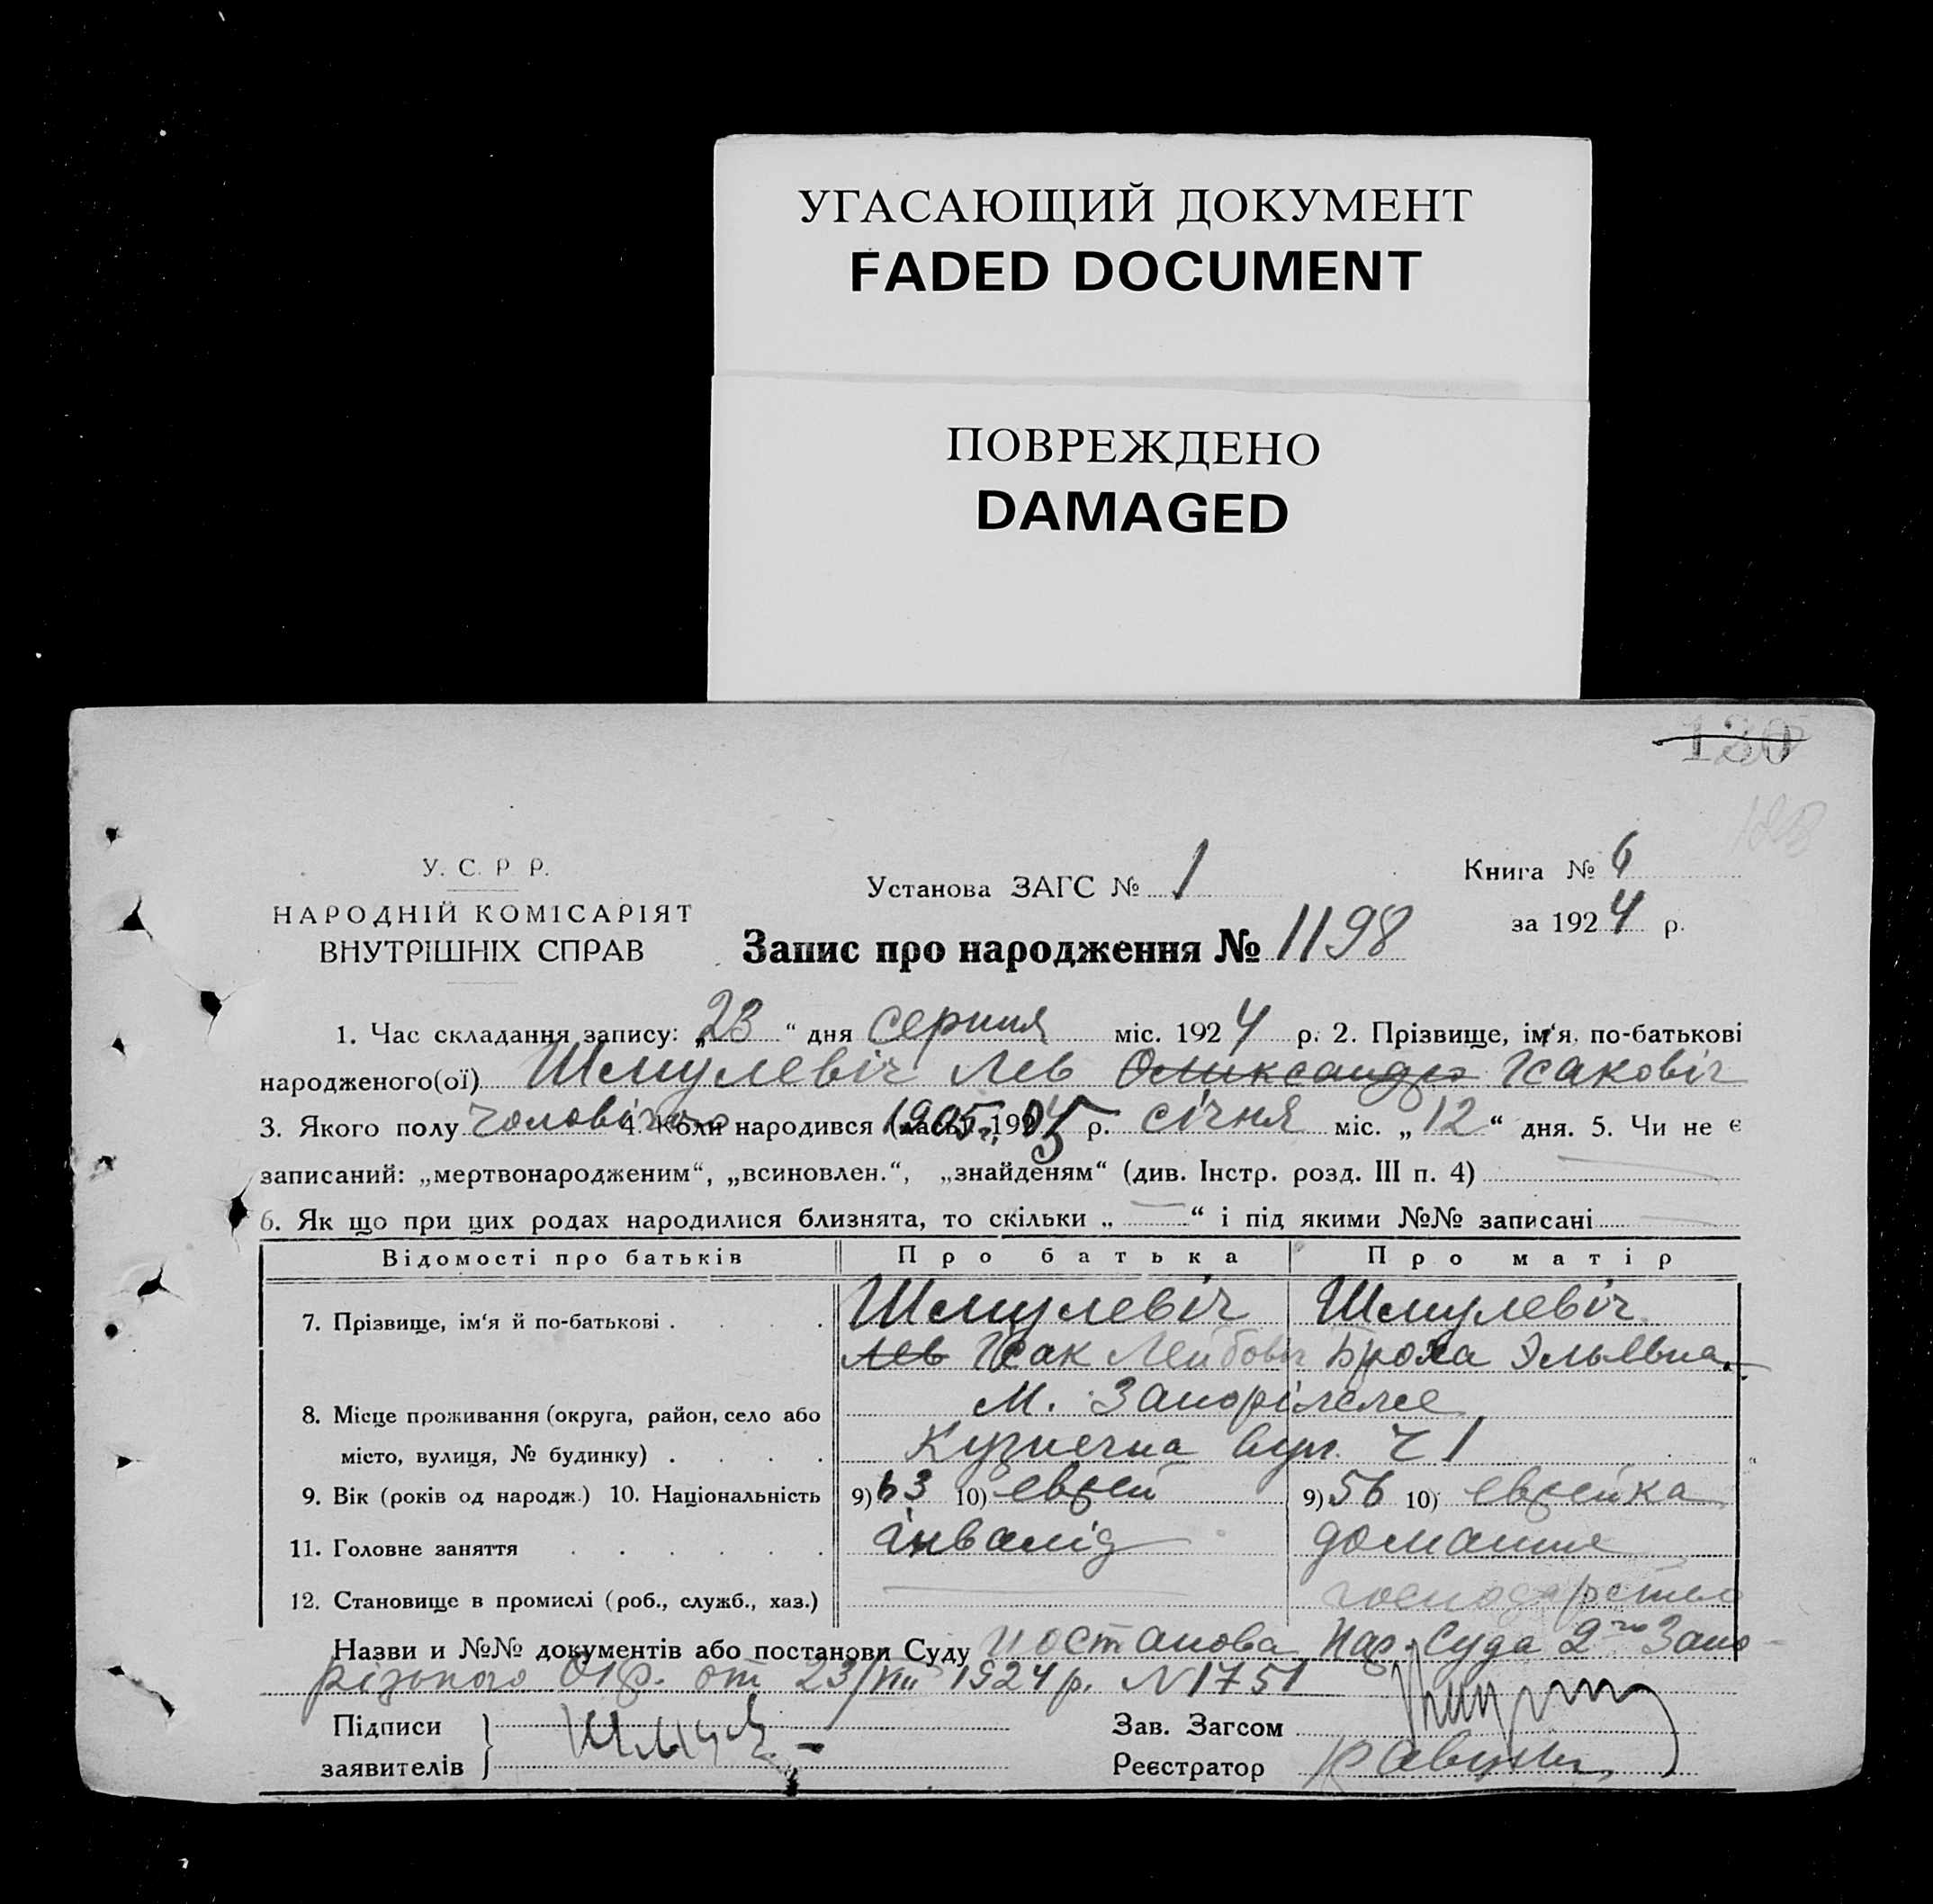 УГАСАЮЩИЙ ДОКУМЕНТ
FADED DOCUMENT
ПОВРЕЖДЕНО
DAMAGED
130
У. С. Р Р.
НАРОДНІЙ КОМІСАРІЯТ
ВНУТРІШНІХ СПРАВ
Установа ЗАГС № 1
Книга № 6
за 1924 р.
Запис про народження № 1198
1. Час складання запису: „23“ дня серпня міс. 1924 р. 2. Прізвище, ім‘я, по-батькові
народженого(ої) Шмулевіч Лев Олександр Ісаковіч
3. Якого полу чоловічого 4. Коли народився 1905 р. січня міс. „12“ дня. 5. Чи не є
записаний: „мертвонародженим“, „всиновлен.“, „знайденям“ (див. Інстр. розд. III п. 4)
6. Як що при цих родах народилися близнята, то скільки „ “ і під якими №№ записані
Відомості про батьків Про батька Про матір
7. Прізвище, ім‘я й по-батькові . . . . Шмулевіч Шмулевіч
Лев Ісак Лейбовіч Броха Эльевна
8. Місце проживання (округа, район, село або М. Запоріжжє
місто, вулиця, № будинку) . . . . Кузнечна вул. Ч 1
9. Вік (років од народж.) 10. Національність 9) 63 10) еврей 9) 56 10) еврейка
11. Головне заняття . . . . . . інвалід домашнє
12. Становище в промислі (роб., служб., хаз.) господарство
Назви и №№ документів або постанови Суду постанова Нар. Суда 2го Запо-
різького Окр. от 23/VIII 1924 р. N 1751
Підписи
заявителів
Зав. Загсом
Реєстратор